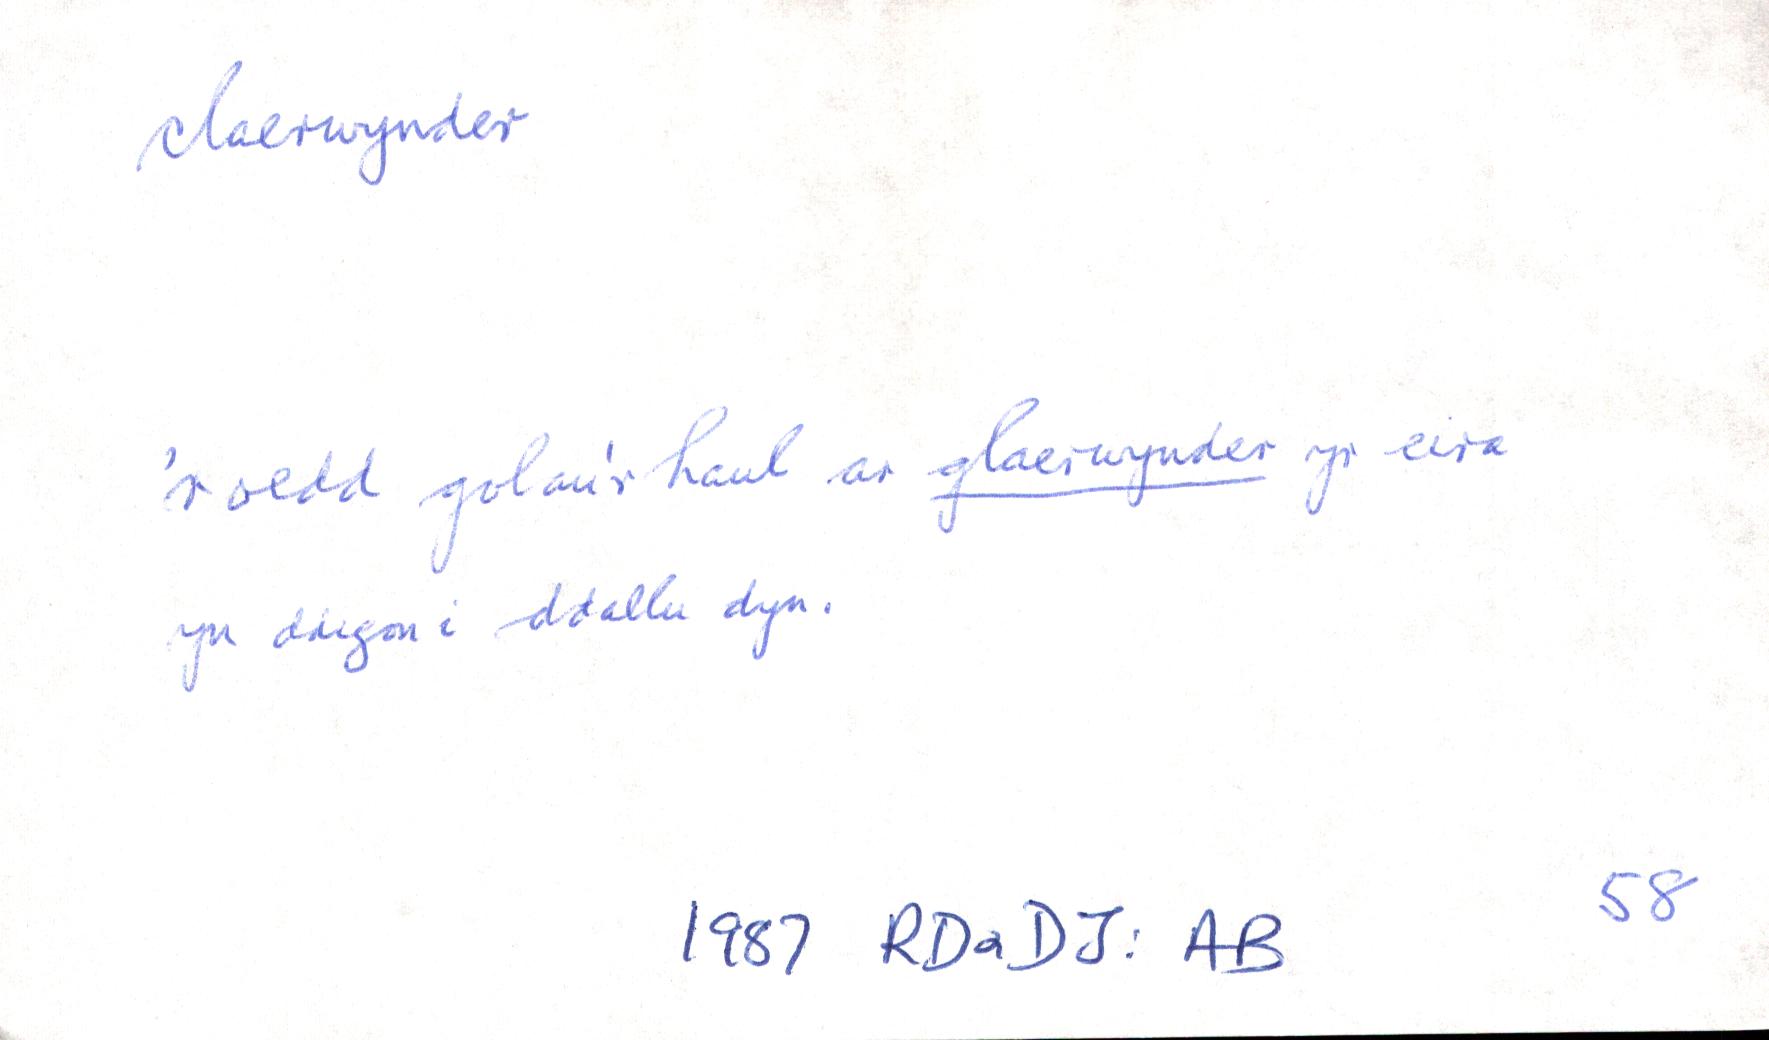 claerwynder
'roedd golau'r haul ar glaerwynder yr eira
yn ddigon i ddallu dyn.
1987 RDaDJ: AB 58